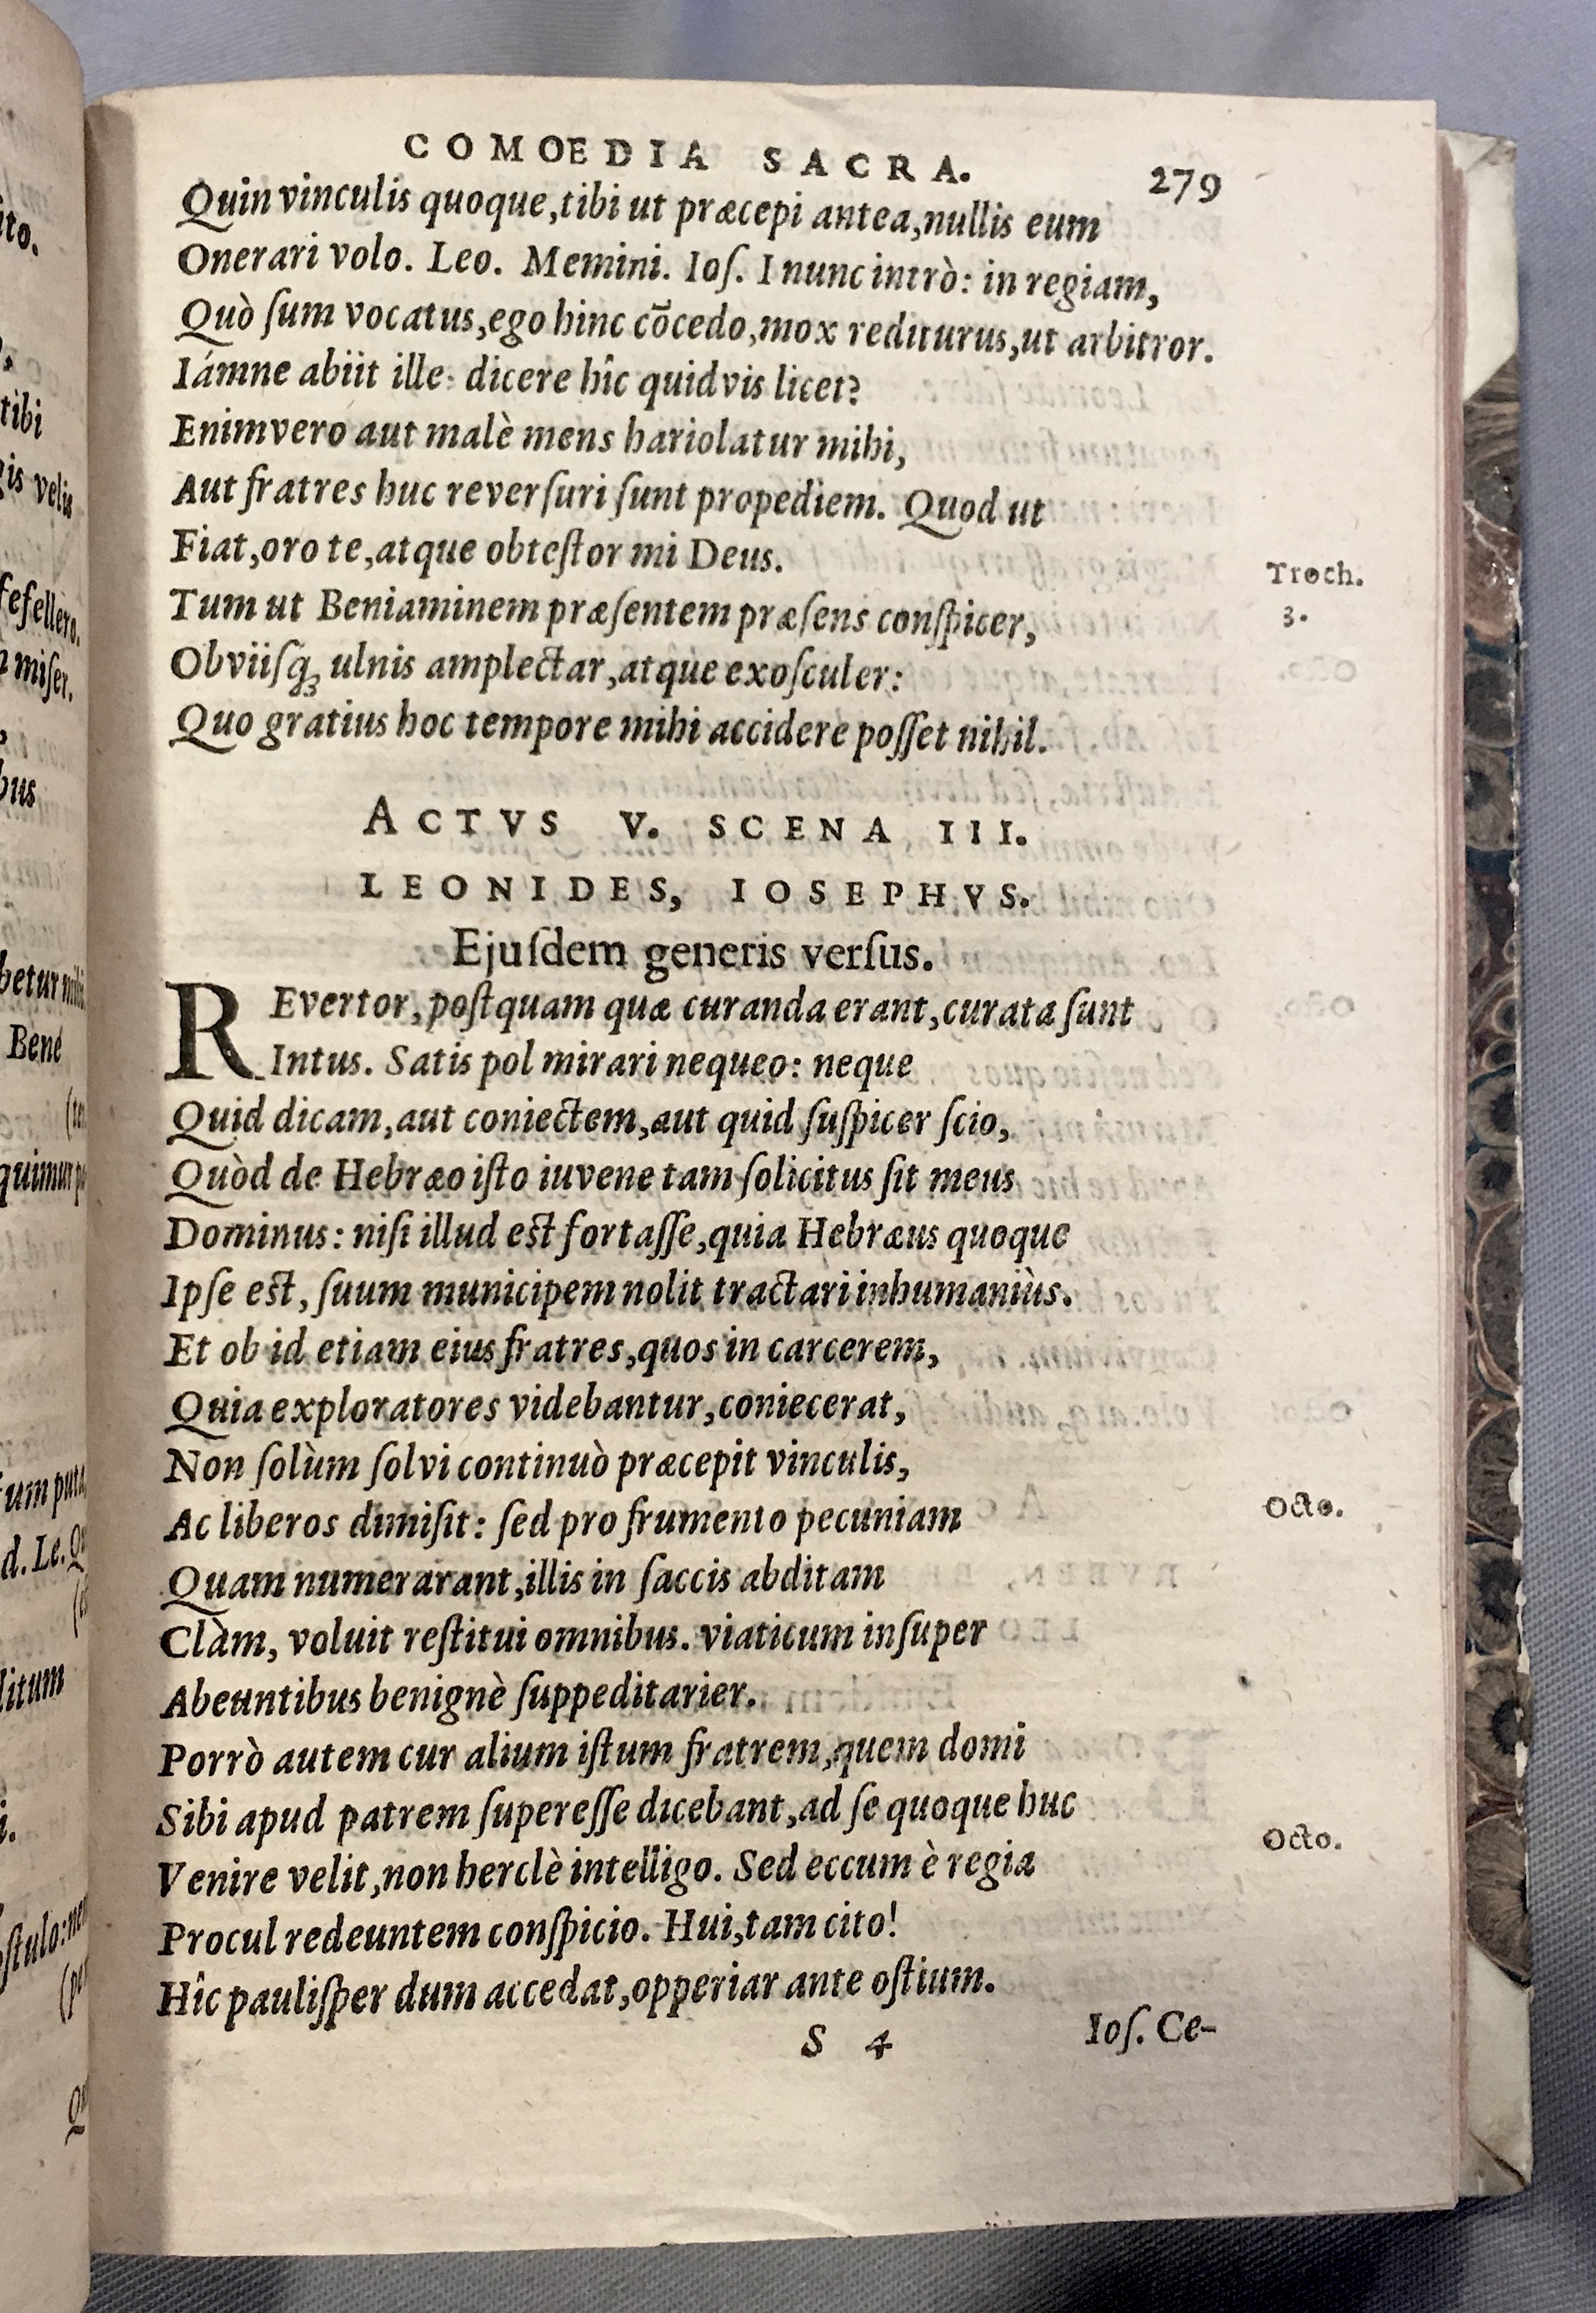 COMOEDIA SACRA. 279
Quin vinculis quoque,tibi ut præcepi antea,nullis eum
Onerari volo. Leo. Memini. Ioſ. I nunc intrò: in regiam,
Quò ſum vocatus,ego hinc cõcedo,mox rediturus,ut arbitror.
Iámne abiit ille: dicere hîc quidvis licet?
Enimvero aut malè mens hariolatur mihi,
Aut fratres huc reverſuri ſunt propediem. Quod ut
Fiat,oro te,atque obteſtor mi Deus.
Troch.
Tum ut Beniaminem præſentem præſens conſpicer,
3.
Obviiſq; ulnis amplectar,atque exoſculer:
Quo gratius hoc tempore mihi accidere poſſet nihil.
ACTVS V. SCENA III.
LEONIDES, IOSEPHVS.
Ejuſdem generis verſus.
REvertor,poſtquam quæ curanda erant,curata ſunt
Intus. Satis pol mirari nequeo: neque
Quid dicam,aut coniectem,aut quid ſuſpicer ſcio,
Quòd de Hebræo iſto iuvene tam ſolicitus ſit meus
Dominus: niſi illud eſt fortaſſe,quia Hebræus quoque
Ipſe eſt, ſuum municipem nolit tractari inhumaniùs.
Et ob id etiam eius fratres,quos in carcerem,
Quia exploratores videbantur,coniecerat,
Non ſolùm ſolvi continuò præcepit vinculis,
Ac liberos dimiſit: ſed pro frumento pecuniam
Octo.
Quam numerarant,illis in ſaccis abditam
Clàm, voluit reſtitui omnibus. viaticum inſuper
Abeuntibus benignè ſuppeditarier.
Porrò autem cur alium iſtum fratrem,quem domi
Sibi apud patrem ſupereſſe dicebant,ad ſe quoque huc
Octo.
Venire velit,non herclè intelligo. Sed eccum è regia
Procul redeuntem conſpicio. Hui,tam cito!
Hîc pauliſper dum accedat,opperiar ante oſtium.
S 4 Ioſ. Ce-